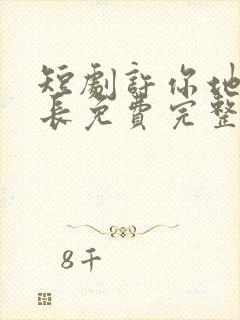 短劇許你地
長免費完整
8千